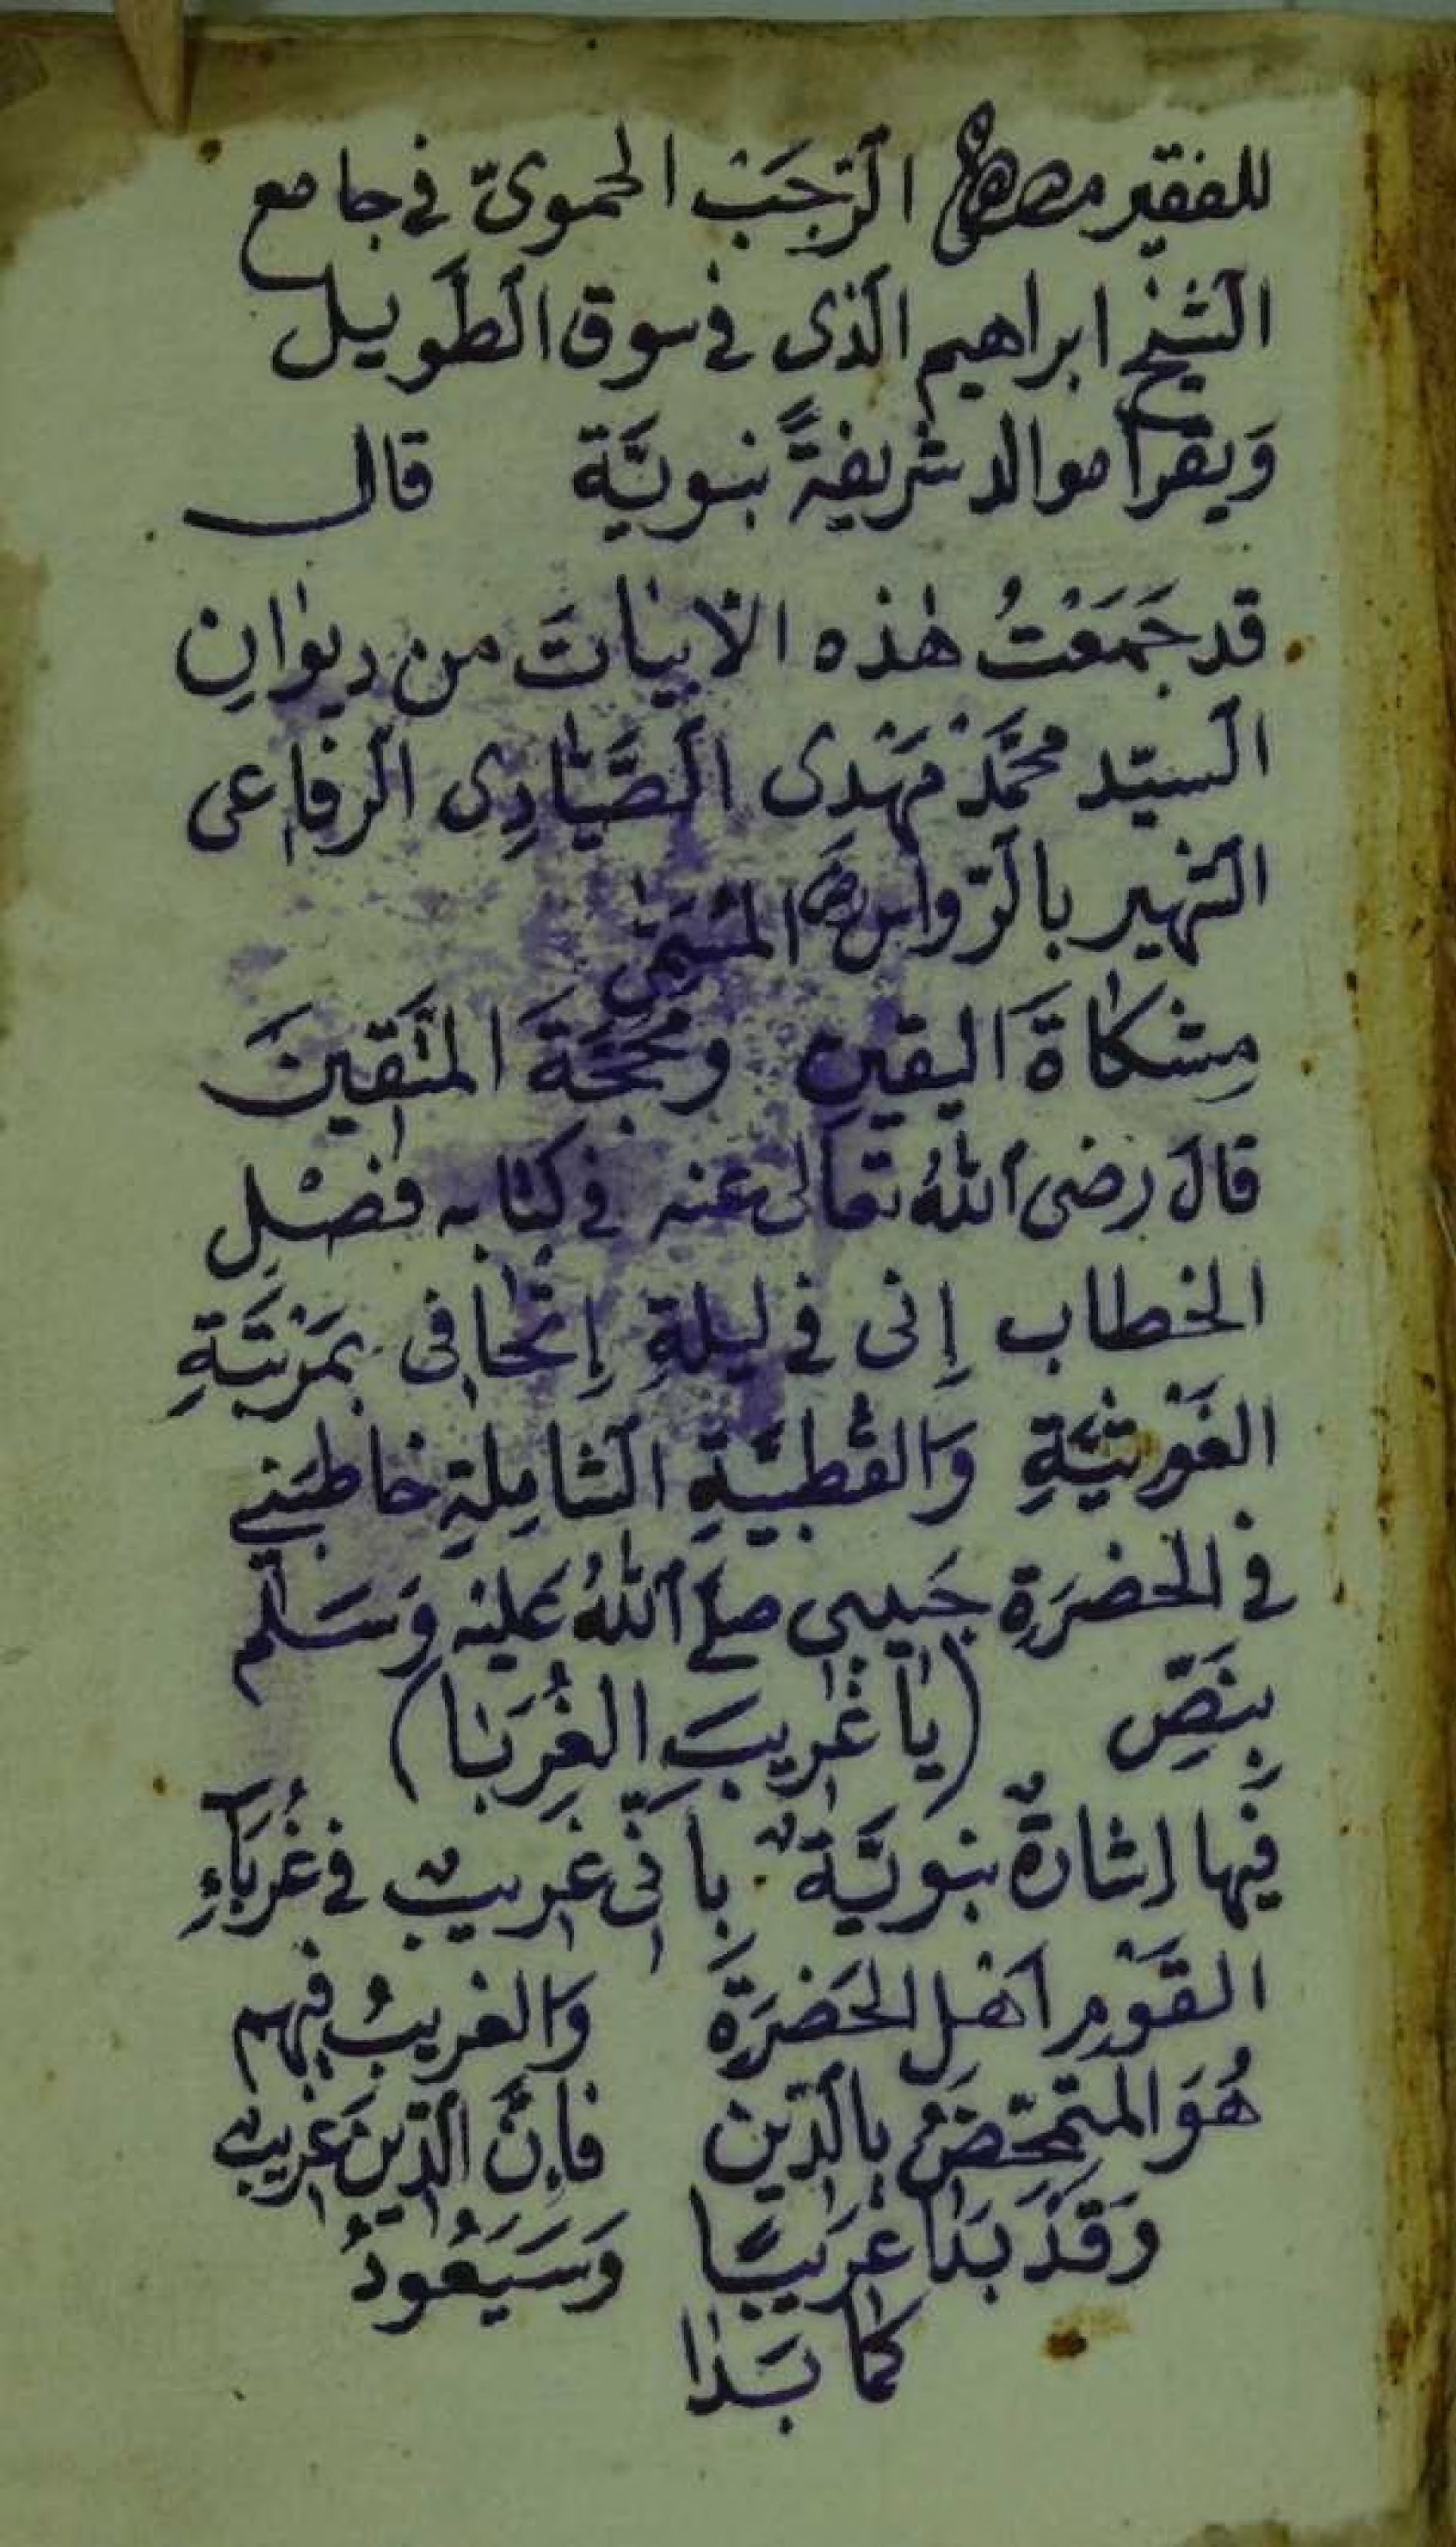 للفقير الرَّجَبْ الحموىّ فى جامع
الشيخ ابراهيم الذى فى سوق الطَّويل
وَيقرأ موالد شريفةً نبويَّة قال
قد جَمَعْتُ هٰذه الابياتَ من ديوٰانِ
السيّد محمَّدْ مَهْدى الصَّيّادِى الرفاعى
الشهير بالرّواس المسمّى
مِشكاةَ اليقينِ ومَحَجَّةَ المتَّقينَ
قالَ رضى اللهُ تعالى عنه فى كتابه فَصْلِ
الخطاب إنى فى ليلةِ إتْحافى بمَرْتَبَةِ
الغَوْثيَّةِ وَالقُطبيَّةِ الشامِلةِ خاطبَنى
فى الحضرَةِ حَبيبى صلى اللهُ عَليْه وَسَلَّم
بِنَصِّ (يا غَريبَ الغُرَبا)
فيها اشارةٌ نبويَّةٌ بأنّى غريبٌ فى غُرَبَآءِ
القَوْمِ اَهْلِ الحَضرَةِ وَالغريبُ فيهم
هُوَ المتمحّضُ بالدّين فاِنَّ الدّينَ غريبٌ
وَقَدْ بَدَا غَريبًا وَسَيَعُودُ
كما بَدَا